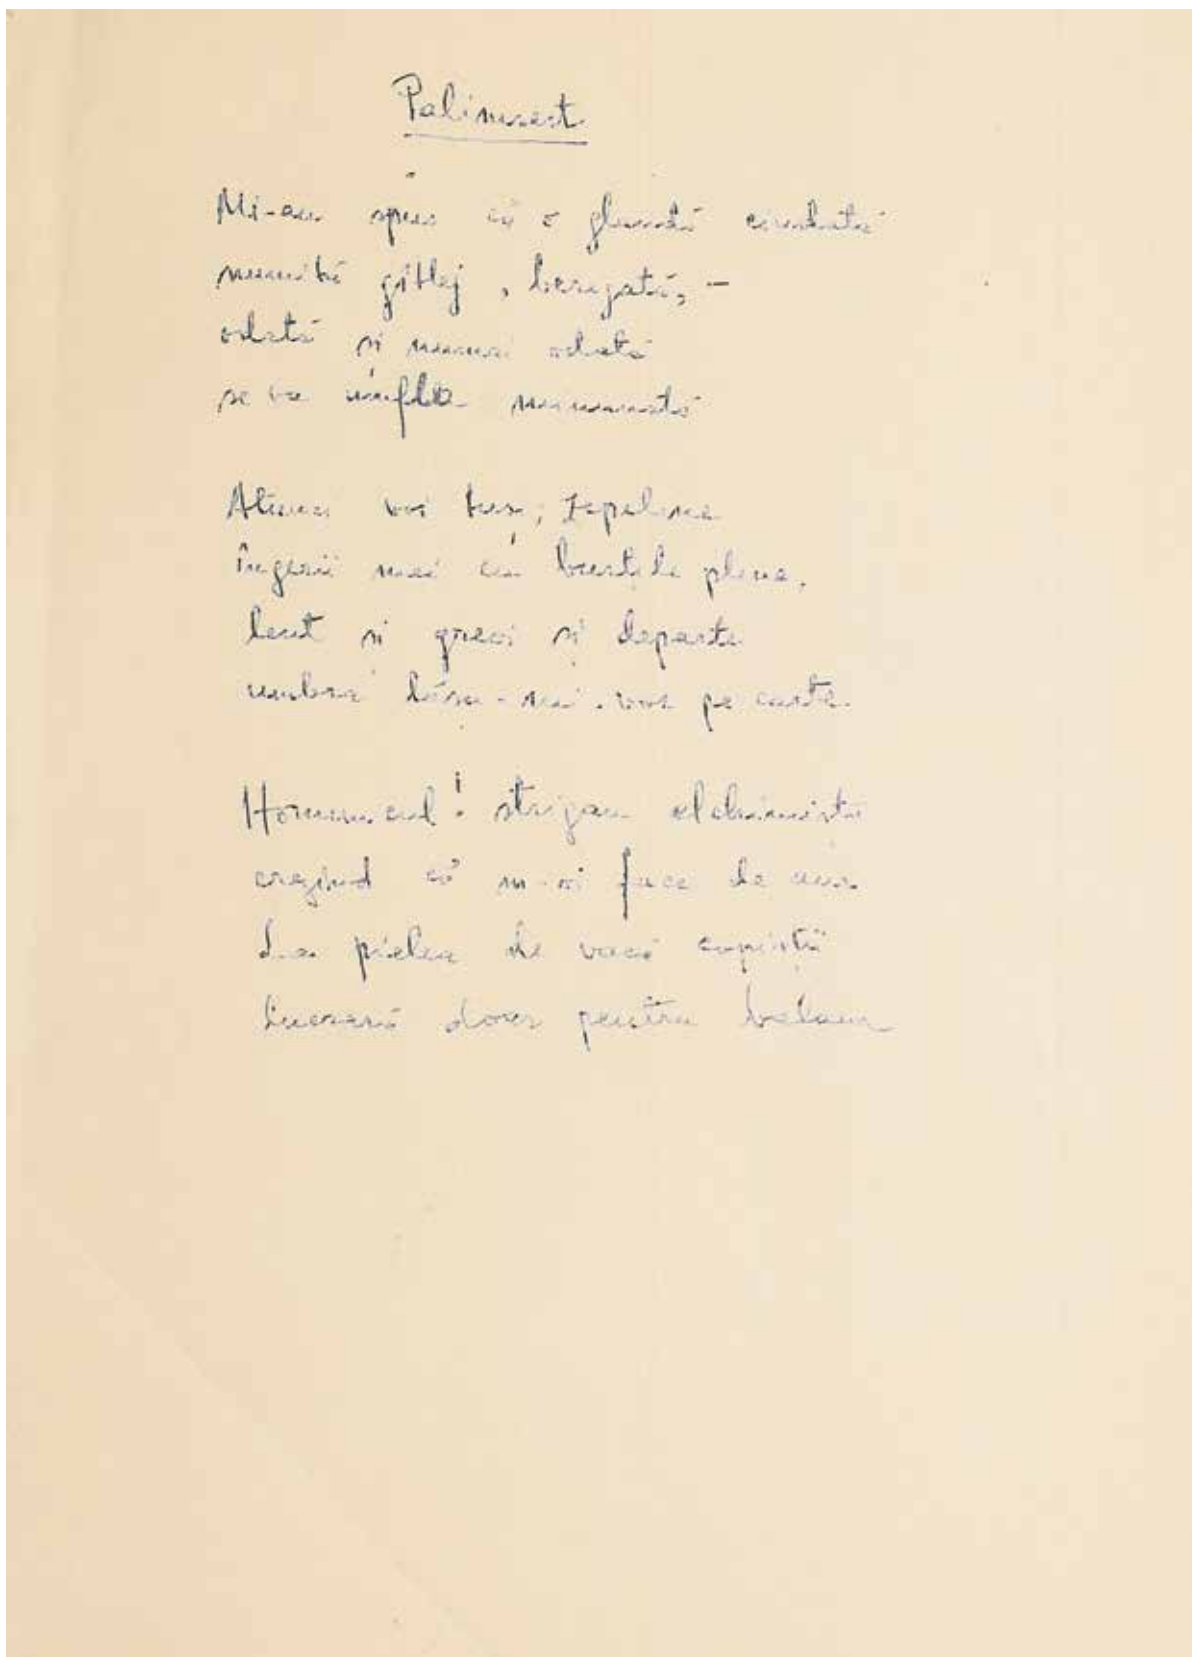 Palimsest
Mi-au spus că o glandă ciudată
numită gîtlej, beregată, –
odată și numai odată
se va umfla minunată
Atunci voi tuși, zepeline
îngerii mei cu burțile pline,
lent și greoi și departe
umbra lăsa-mi-vor pe carte.
Homuncul! strigau alchimiștii
crezînd că m-oi face de aur
La pielea de vacă copiștii
lucrară doar pentru